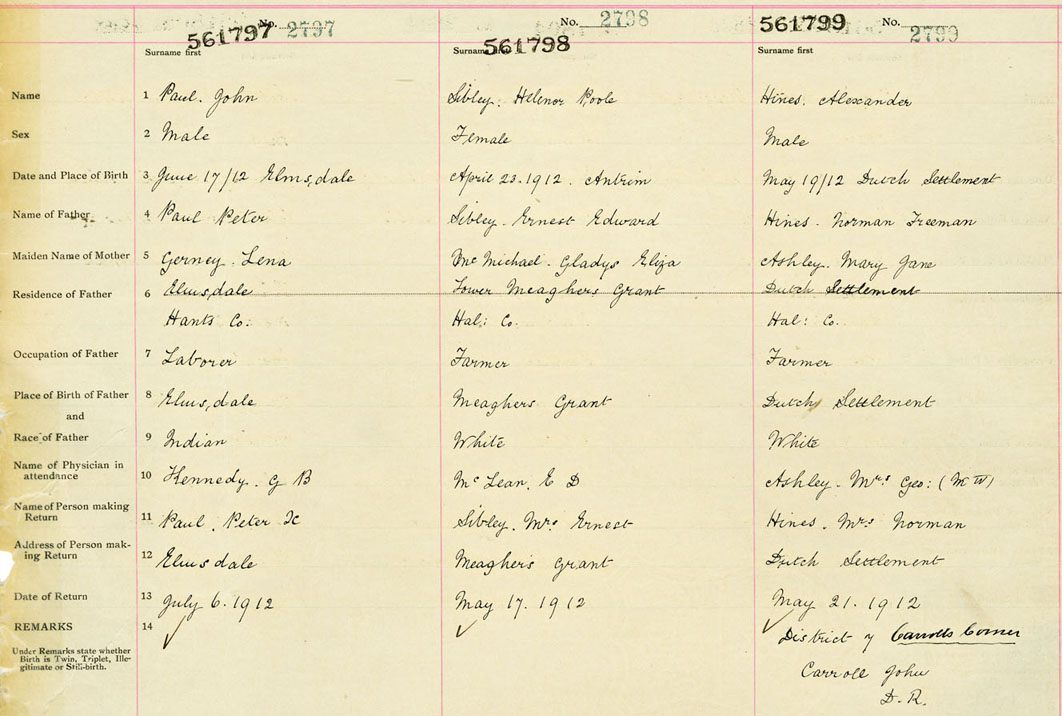 No. 2797 No. 2798 No. 2799
561797 561798 561799
Surname first Surname first Surname first
Name 1 Paul. John Sibley. Helenor Poole Hines. Alexander
Sex 2 Male Female Male
Date and Place of Birth 3 June 17/12 Elmsdale April 23. 1912. Antrim May 19/12 Dutch Settlement
Name of Father 4 Paul Peter Sibley. Ernest Edward Hines. Norman Freeman
Maiden Name of Mother 5 Gerney. Lena McMichael. Gladys Eliza Ashley. Mary Jane
Residence of Father 6 Elmsdale Lower Meaghers Grant Dutch Settlement
Hants Co: Hal: Co. Hal: Co.
Occupation of Father 7 Laborer Farmer Farmer
Place of Birth of Father 8 Elmsdale Meaghers Grant Dutch Settlement
and
Race of Father 9 Indian White White
Name of Physician in
attendance 10 Kennedy. G B McLean. E D Ashley. Mrs Geo: (M W)
Name of Person making
Return 11 Paul. Peter Sibley. Mrs Ernest Hines. Mrs Norman
Address of Person mak-
ing Return 12 Elmsdale Meaghers Grant Dutch Settlement
Date of Return 13 July 6. 1912 May 17. 1912 May 21. 1912
REMARKS 14 District of Carrolls Corner
Under Remarks state whether
Birth is Twin, Triplet, Ille-
gitimate or Still-birth.
Carroll John
D. R.